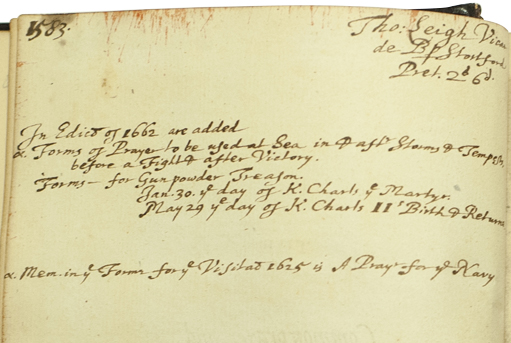 1583.
Tho: Leigh Vicar
de Bp Stortford
Pret. 2s 6d.
In Edict. of 1662 are added
α. Forms of Prayer to be used at Sea in & aft. Storms & Tempests,
before a Fight & after Victory.
Forms for Gunpowder Treason.
Jan. 30. ye day of K. Charls ye Martyr.
May 29 ye day of K. Charls II's Birth & Return
α. Mem. in ye Forme for ye Visitat. 1625 is A Prayr for ye Navy